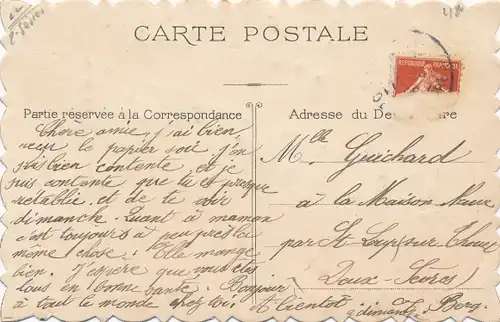 CARTE POSTALE
REPUBLIQUE FRANÇAISE
Partie réservée à la Correspondance
Chère amie, j'ai bien
reçu le papier soie j'en
suis bien contente et je
suis contente que tu es presque
rétablie et de te voir
dimanche. Quant à maman
c'est toujours à peu près la
même chose. Elle mange
bien. J'espère que vous êtes
tous en bonne santé. Bonjour
à tout le monde chez toi. A bientôt à dimanche. Berg.
Adresse du De re
Mlle Guichard
à la Maison Neuve
par St Loup sur Thouet
Deux-Sèvres